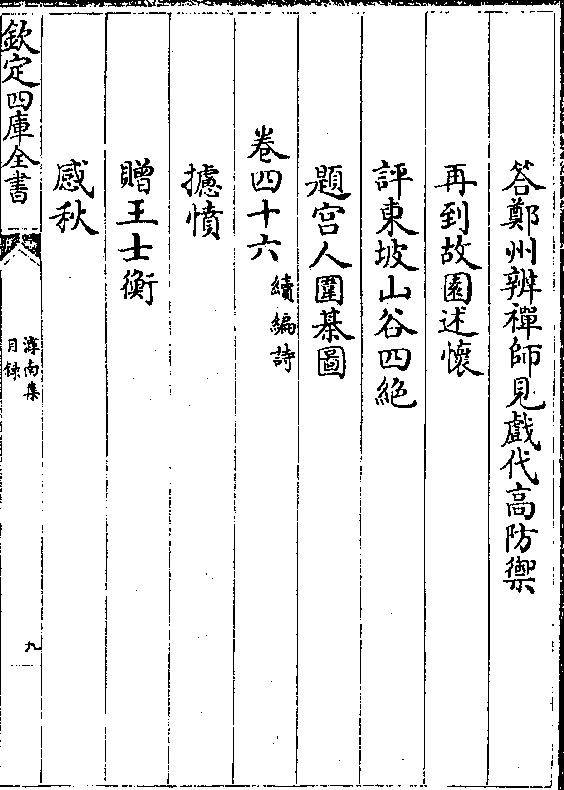 答鄭州辨禪師見戲代高防禦
再到故園述懷
評東坡山谷四絶
題宫人圍棊圖
卷四十六續編詩
攄憤
贈王士衡
感秋
欽定四庫全書
滹南集
目録
九